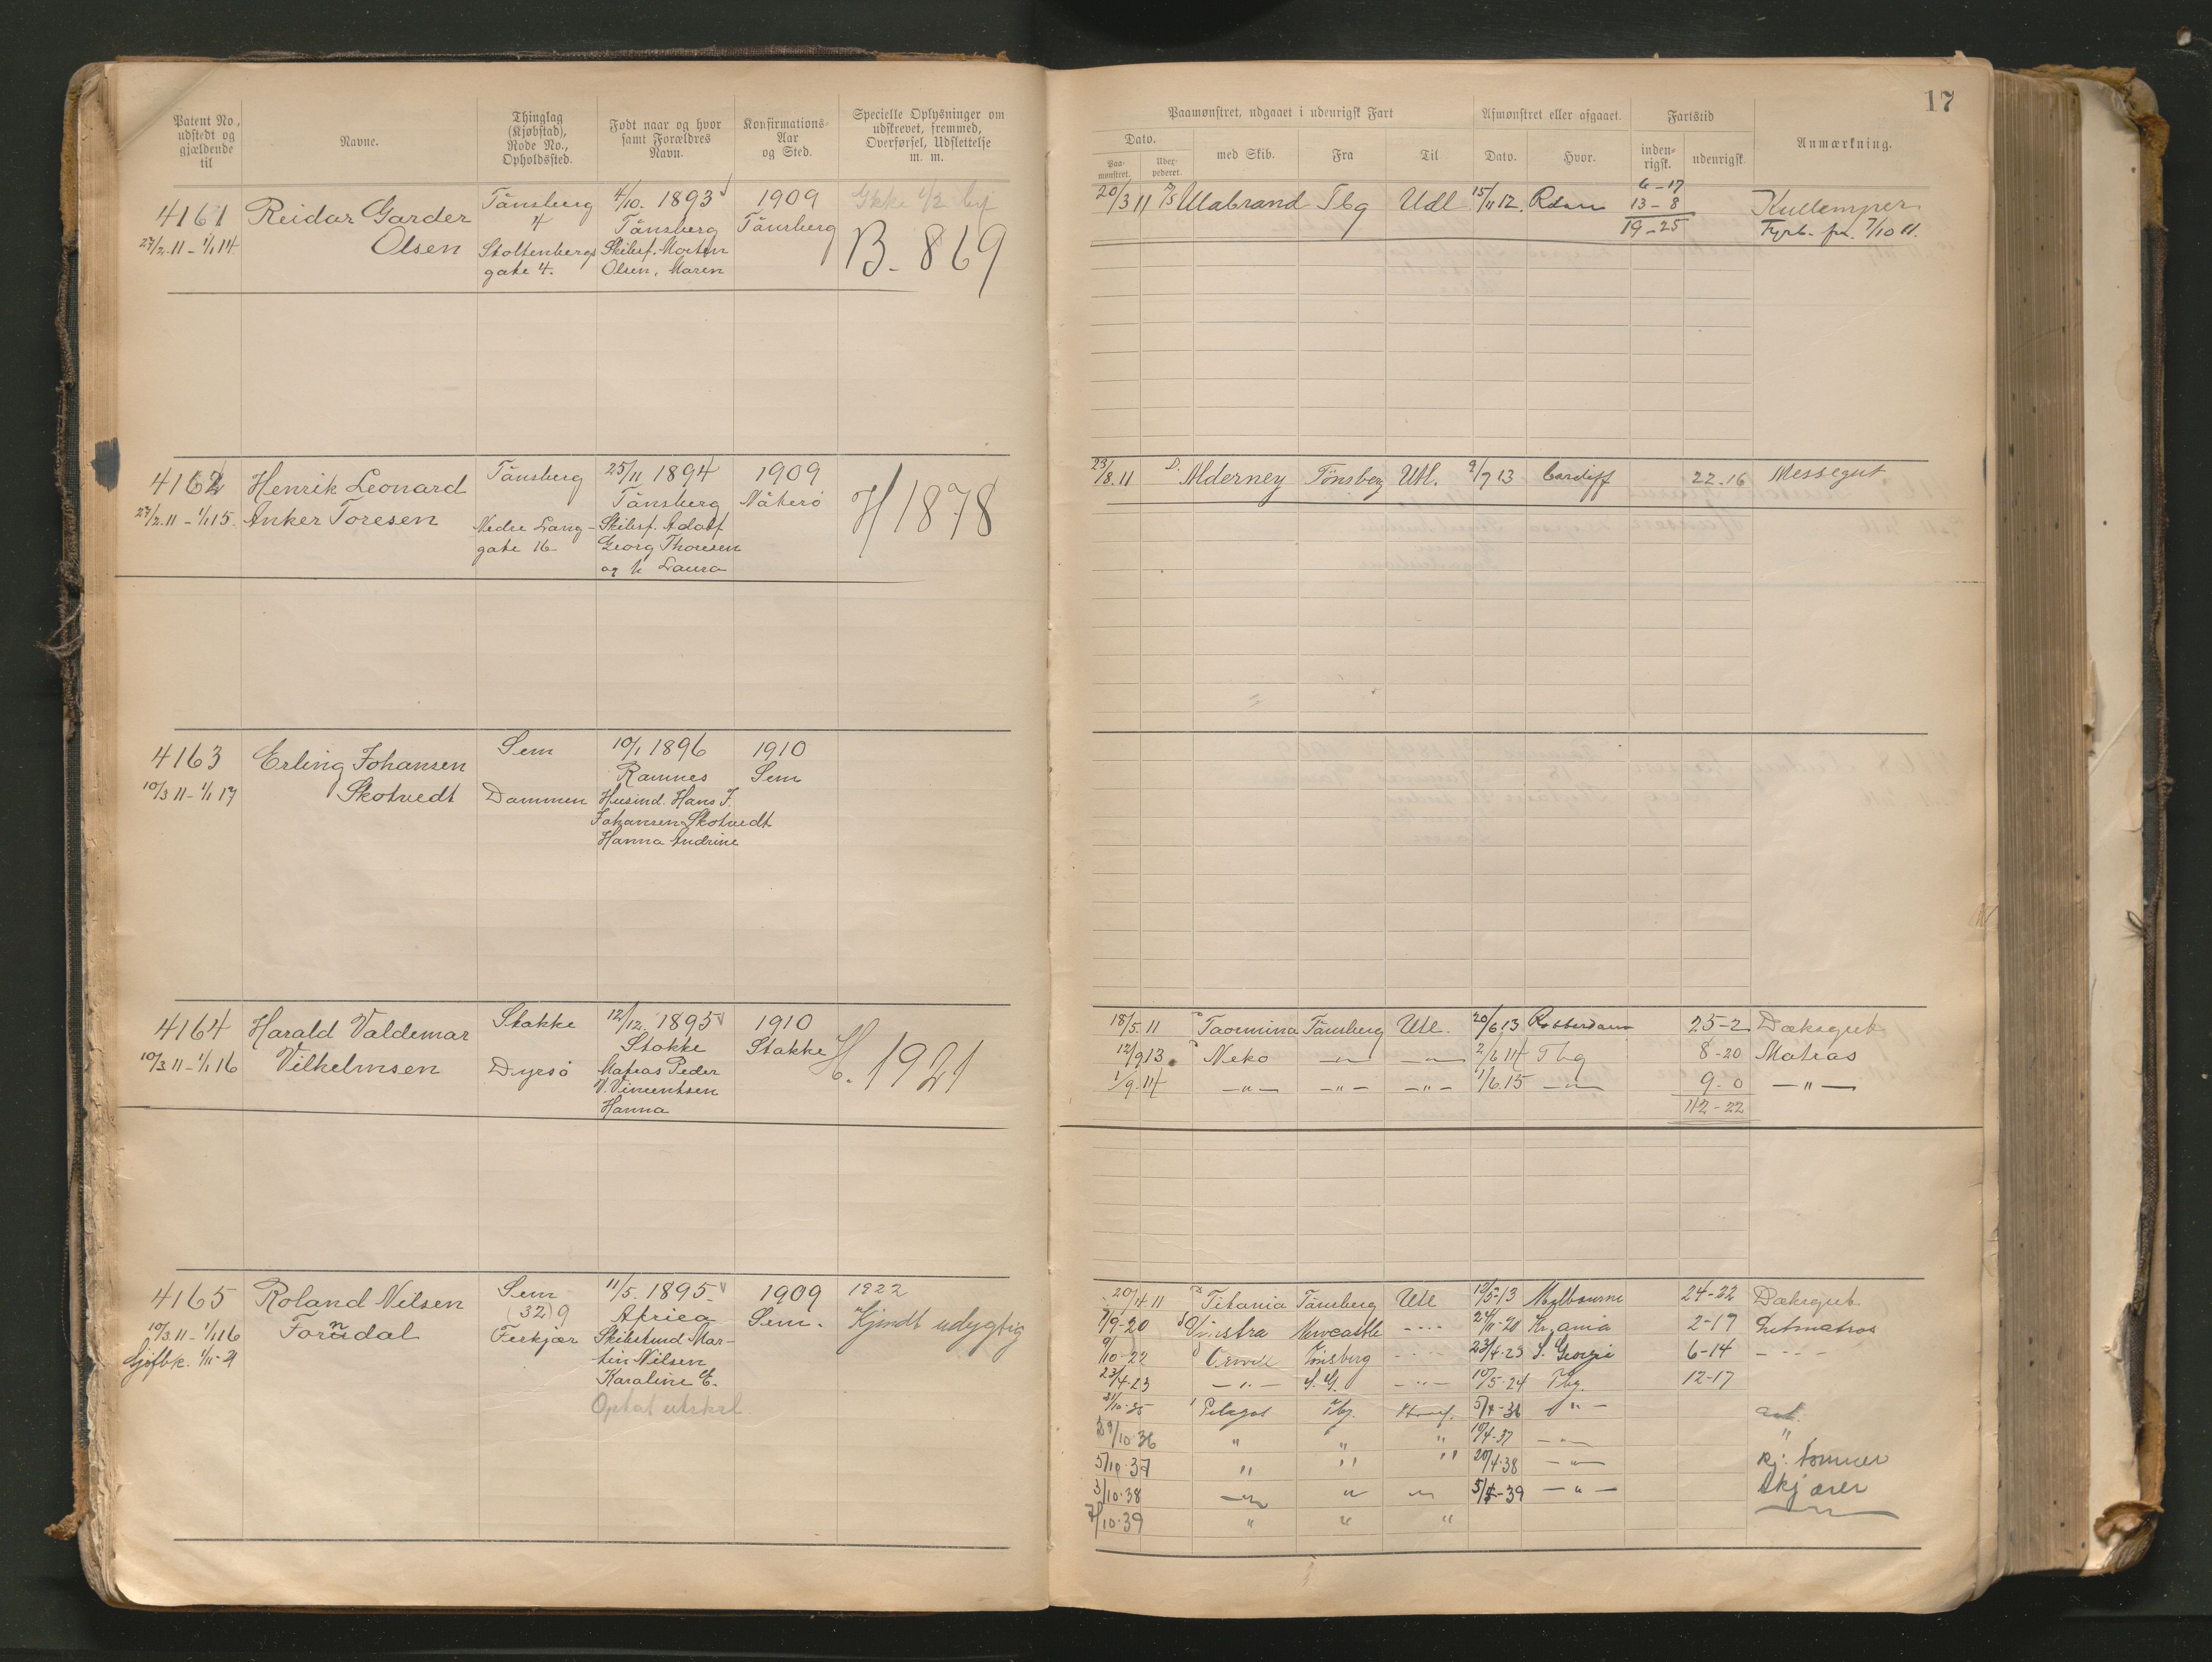 17
Patent No., udstedt og gjældende til
Navne.
Thinglag (Kjøbstad), Rode No., Opholdssted.
Født naar og hvor samt Forældres Navn.
Konfirmations-Aar og Sted.
Specielle Oplysninger om udskrevet, fremmed, Overførsel, Udslettelse m. m.
Paamønstret, udgaaet i udenrigsk Fart
Afmønstret eller afgaaet.
Fartstid
Anmærkning.
Dato.
Paa-mønstret.
med Skib.
Fra
Til
Dato.
Hvor.
inden-rigsk.
udenrigsk.
4161
27/2.11 - 1/1 14.
Reidar Garder
Olsen
Tønsberg
4
Stoltenbergs
gate 4.
4/10. 1893
Tønsberg
Skibsf. Morten
Olsen, Maren
1909
Tønsberg
B. 869
20/3 11 Ulabrand Tbg Udl 15/11 12. Rdam
6-17
13-8
19-25
Kullemper
Fyrb. fra 7/10 11.
4162
27/2.11 - 1/1 15.
Henrik Leonard
Anker Toresen
Tønsberg
Nedre Lang-
gate 16
25/11 1894
Tønsberg
Skibsf. Adolf
Georg Thoresen
og h Laura
1909
Nøterø
H 1878
23/8.11 D. Alderney Tønsberg Utl. 9/7 13 Cardiff 22-16 Messegut
4163
10/3 11 - 1/1 17
Erling Johansen
Skotvedt
Sem
Dammen
10/1 1896
Ramnes
Husmd. Hans J.
Johansen Skotvedt
Hanna Andrine
1910
Sem
4164
10/3 11 - 1/1 16
Harald Valdemar
Vilhelmsen
Stokke
Dyrsø
12/12. 1895
Stokke
Matias Peder
V. Vincentsen
Hanna
1910
Stokke
H. 1921
18/5.11 Taormina Tønsberg Utl. 20/6 13 Rotterdam 25-2 Dæksgut
12/9 13. Neko -"- -"- 2/6 14 Tbg 8-20 Matros
1/9.14 -"- -"- -"- 1/6.15 -"- 9-0 -"-
42-22
4165
10/3 11 - 1/1 16
Sjøfbk. 1/11-21
Roland Nilsen
Forndal
Sem
(32) 9
Ferkjær
11/5. 1895.
Africa
Skibstmd. Mar-
tin Nilsen
Karaline E.
1909
Sem.
1922
Kjendt udygtig
20/4 11 Titania Tønsberg Utl 12/5-13 Melbourne 24-22 Dæksgut
7/9-20 Vinstra Newcastle 24/11-20 Kr.ania 2-17 Letmatros
9/10-22 Orwell Tønsberg 23/4-23 S. Georgia 6-14
23/4-23 -"- S. G. -"- 10/5-24 Tbg. 12-17
21/10-35 Pelagos Tbg. 5/4-36 -"-
29/10-36 " " " 10/4-37 -"- "
5/10-37 " " " 20/4-38 -"- Rj. tømmer
3/10-38 -"- " " 5/5-39 -"- Skjærer
7/10-39 " " "